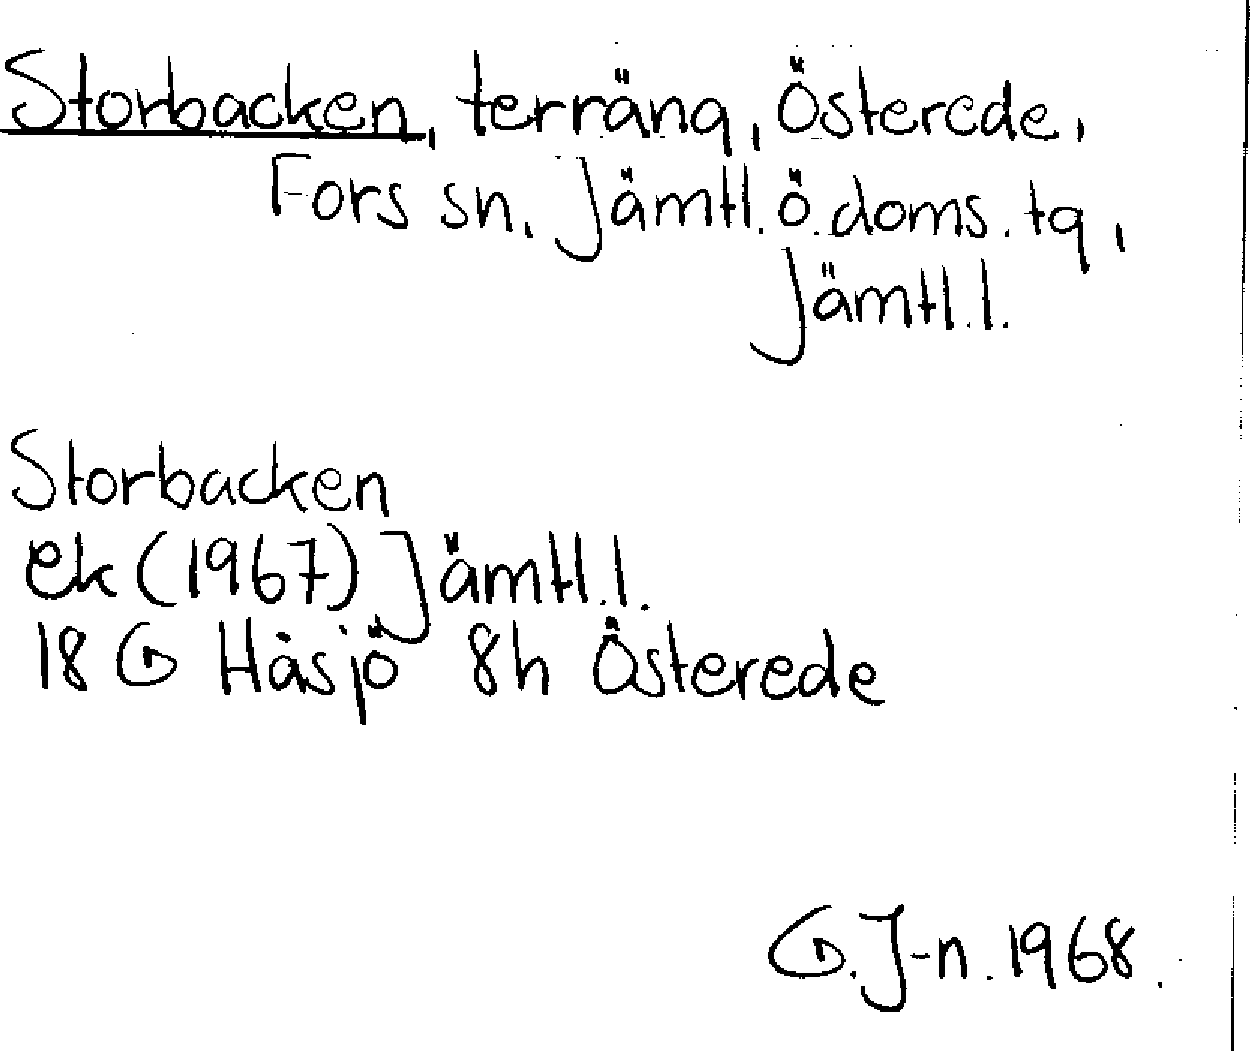 Storbacken, terräng, Österede,
Fors sn. Jämtl. ö. doms. tg,
Jämtl. l.
Storbacken
ek (1967) Jämtl. l.
18 G Håsjö 8h Österede
G. J-n. 1968.